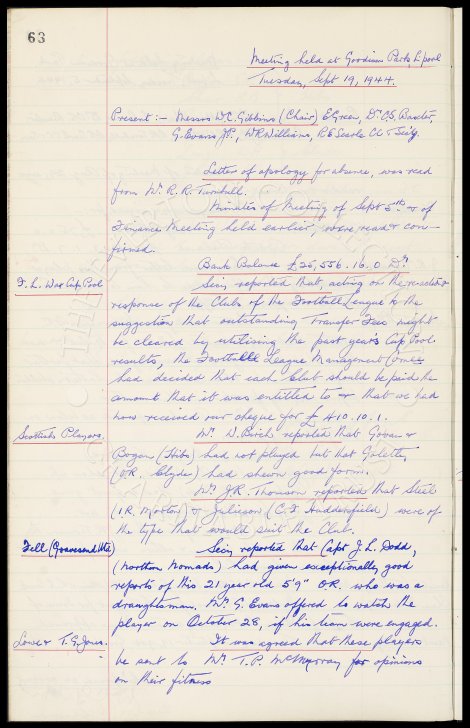 63
Meeting held at Goodison Park, L'pool
Tuesday, Sept 19, 1944.
Present :- Messrs W.C. Gibbins (Chair) E Green, Dr C.S. Baxter,
G. Evans J.P., W.R. Williams, R E Searle Ch & Secy.
Letter of apology for absence, was read
from Mr. R.R. Turnbull.
Minutes of Meeting of Sept 5th & of
Finance Meeting held earlier, were read & con-
firmed.
Bank Balance £25,556.16.0 Dr
F. L. War Cup Pool
Secy reported that, acting on the
response of the Clubs of the Football League to the
suggestion that outstanding Transfer Fees might
be cleared by utilising the past year's Cup Pool
results, the Football League Management
had decided that each Club should be paid the
amount that it was entitled to & that we had
now received our cheque for £410.10.1.
Scottish Players.
Mr W. Birch reported that Govan &
Bogan (Hibs) had not played but that Galletly,
(O.R. Clyde) had shewn good form.
Mr J.R. Thomson reported that Steel
(I.R. Morton) & Juliussen (C.F. Huddersfield) were of
the type that would suit the Club.
Fell (Gravesend Utd)
Secy reported that Capt J.L. Dodd,
(Northern Nomads) had given exceptionally good
reports of this 21 year old 5'9" O.R. who was a
draughtsman. Mr G. Evans offered to watch the
player on October 28, if his team were engaged.
Lowe & T.G. Jones.
It was agreed that these players
be sent to Mr T.P. McMurray for opinions
on their fitness